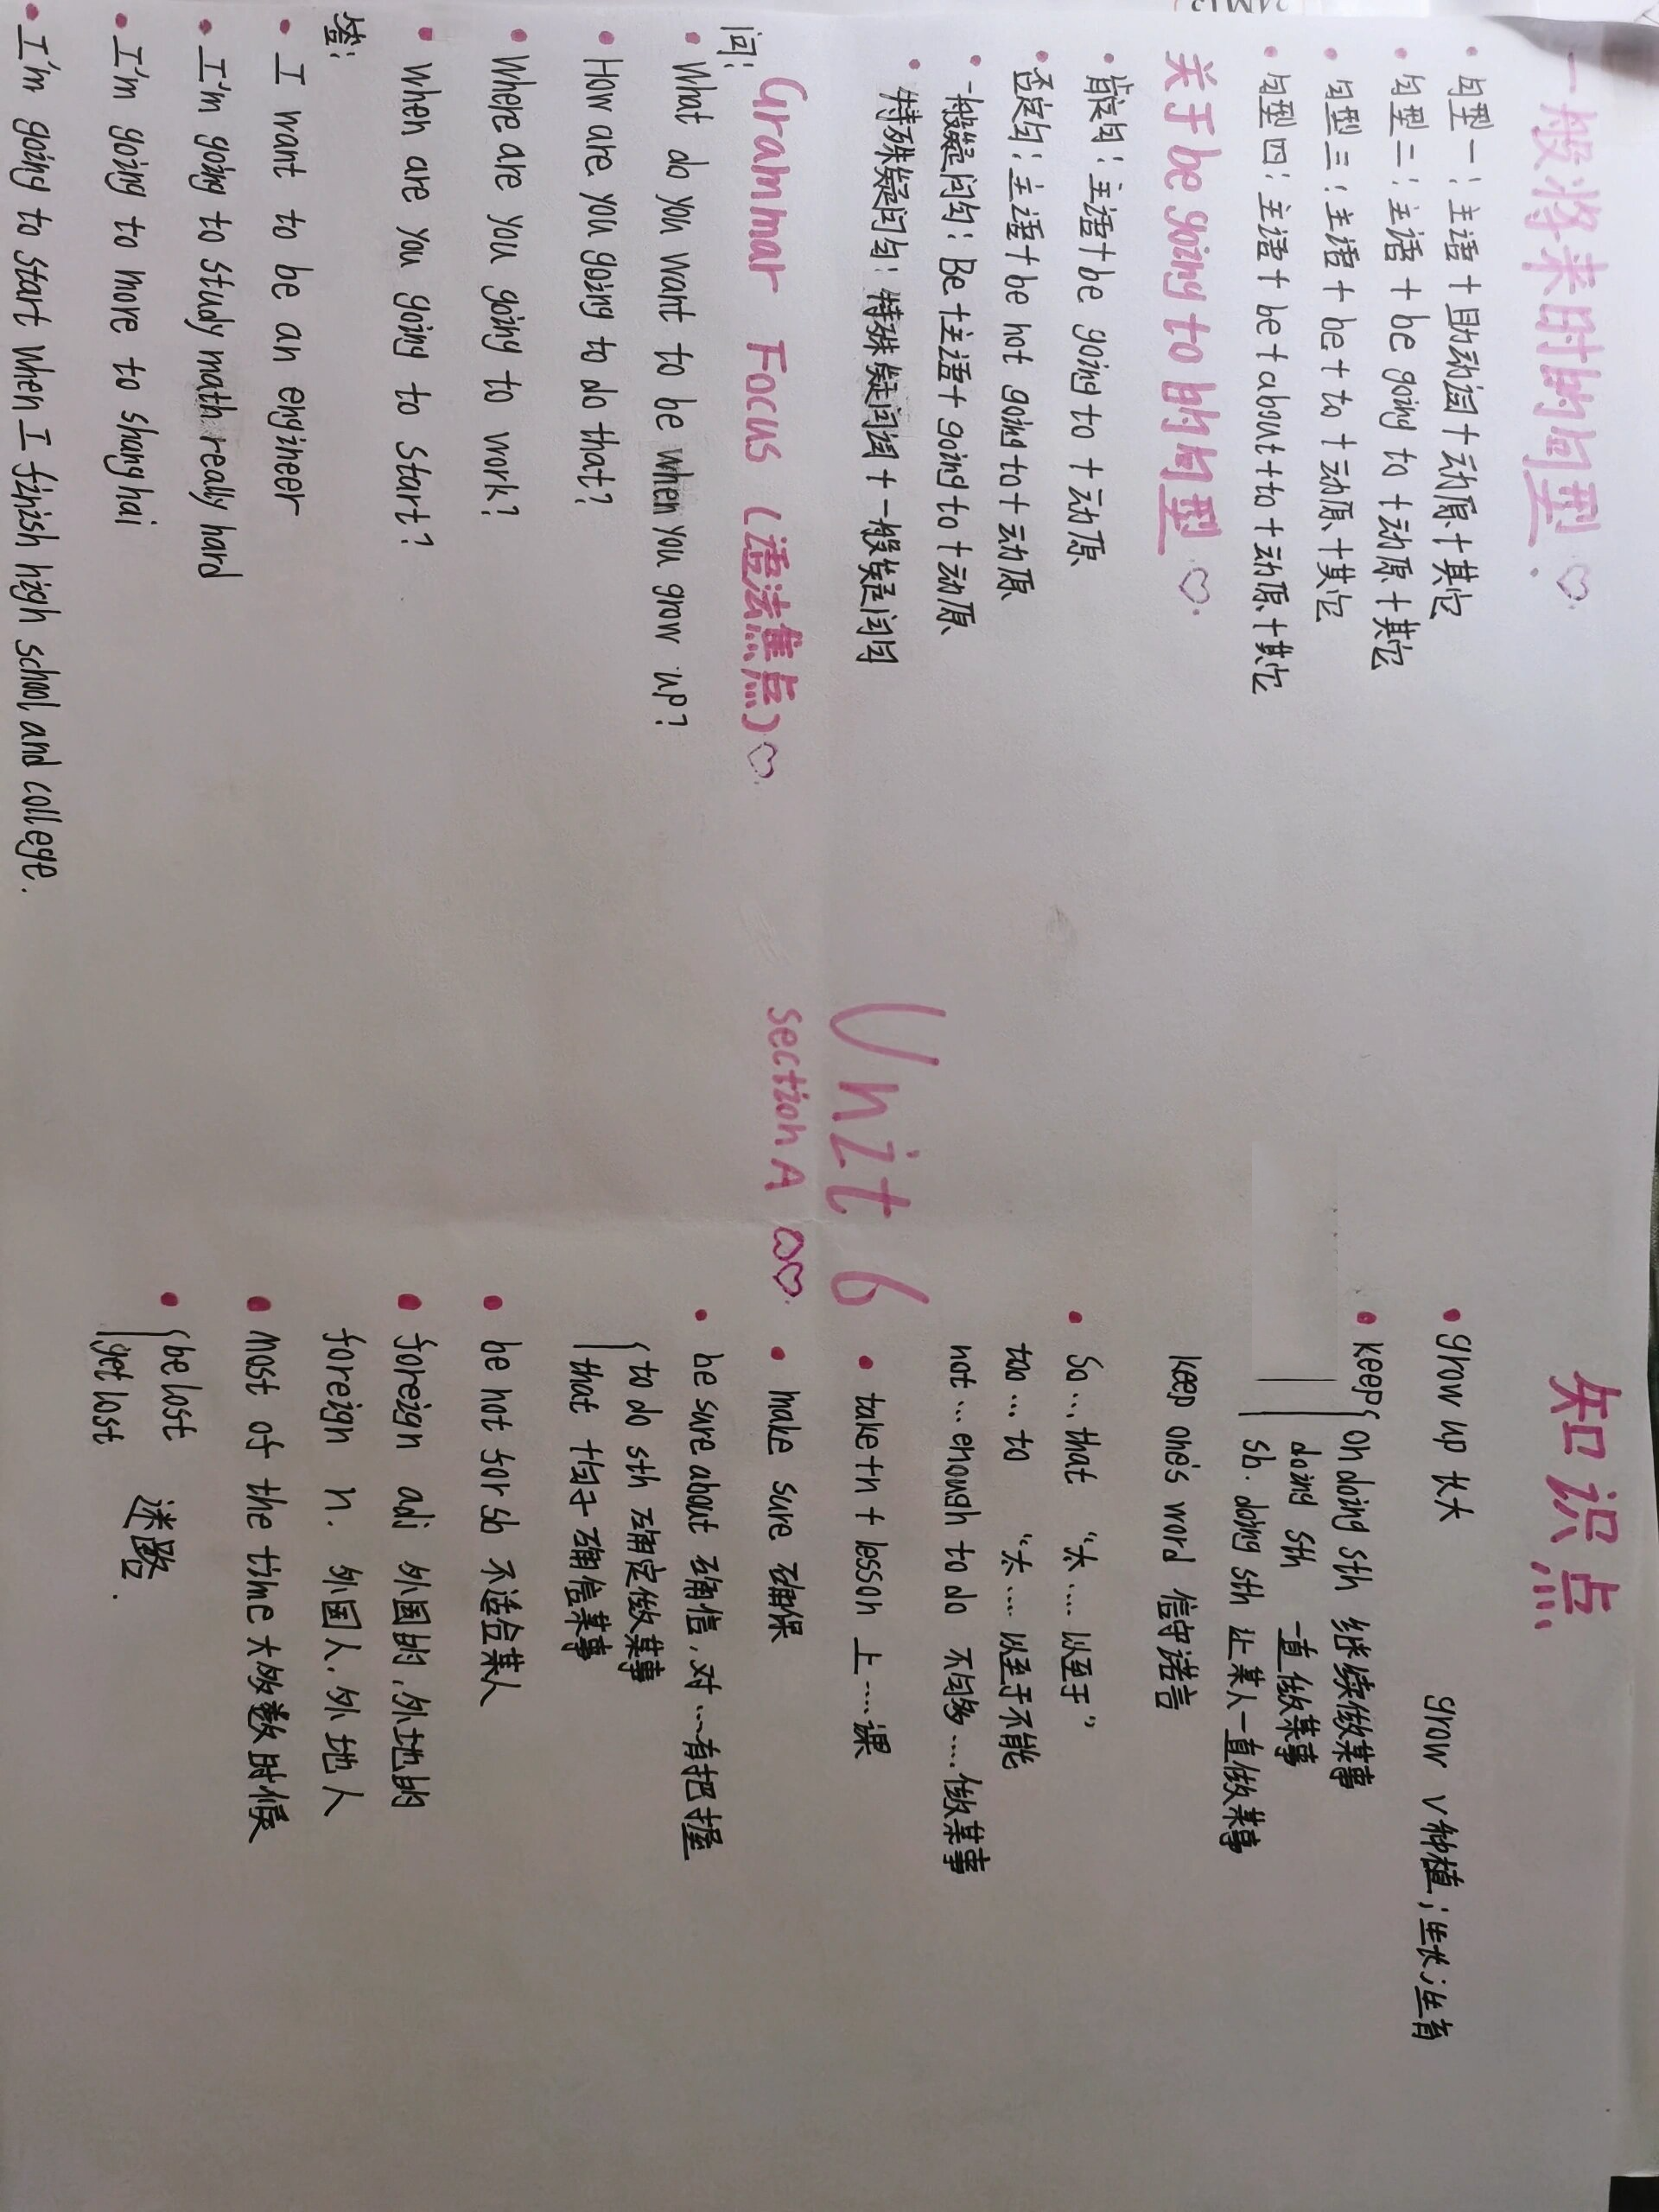 一般将来时的句型
· 句型一：主语＋助动词＋动原＋其它
· 句型二：主语＋be going to＋动原＋其它
· 句型三：主语＋be＋to＋动原＋其它
· 句型四：主语＋be＋about＋to＋动原＋其它
关于be going to的句型
· 肯定句：主语＋be going to＋动原
· 否定句：主语＋be not going to＋动原
· 一般疑问句：Be＋主语＋going to＋动原
· 特殊疑问句：特殊疑问词＋一般疑问句
Grammar Focus（语法焦点）
问：
· What do you want to be when you grow up?
· How are you going to do that?
· Where are you going to work?
· When are you going to start?
答：
· I want to be an engineer
· I'm going to study math really hard
· I'm going to more to shanghai
· I'm going to start when I finish high school and college.
Unit 6
section A
知识点
· grow up 长大 grow v种植；生长；生育
· keep on doing sth 继续做某事
doing sth 一直做某事
sb. doing sth 让某人一直做某事
keep one's word 信守诺言
· So...that "太....以至于"
too...to "太....以至于不能
not...enough to do 不够....做某事
· take+n+lesson 上....课
· make sure 确保
· be sure about 确信，对...有把握
to do sth 确定做某事
that +句子 确信某事
· be not for sb 不适合某人
· foreign adj 外国的，外地的
foreign n. 外国人，外地人
· most of the time 大够数时候
· be lost
get lost 迷路.